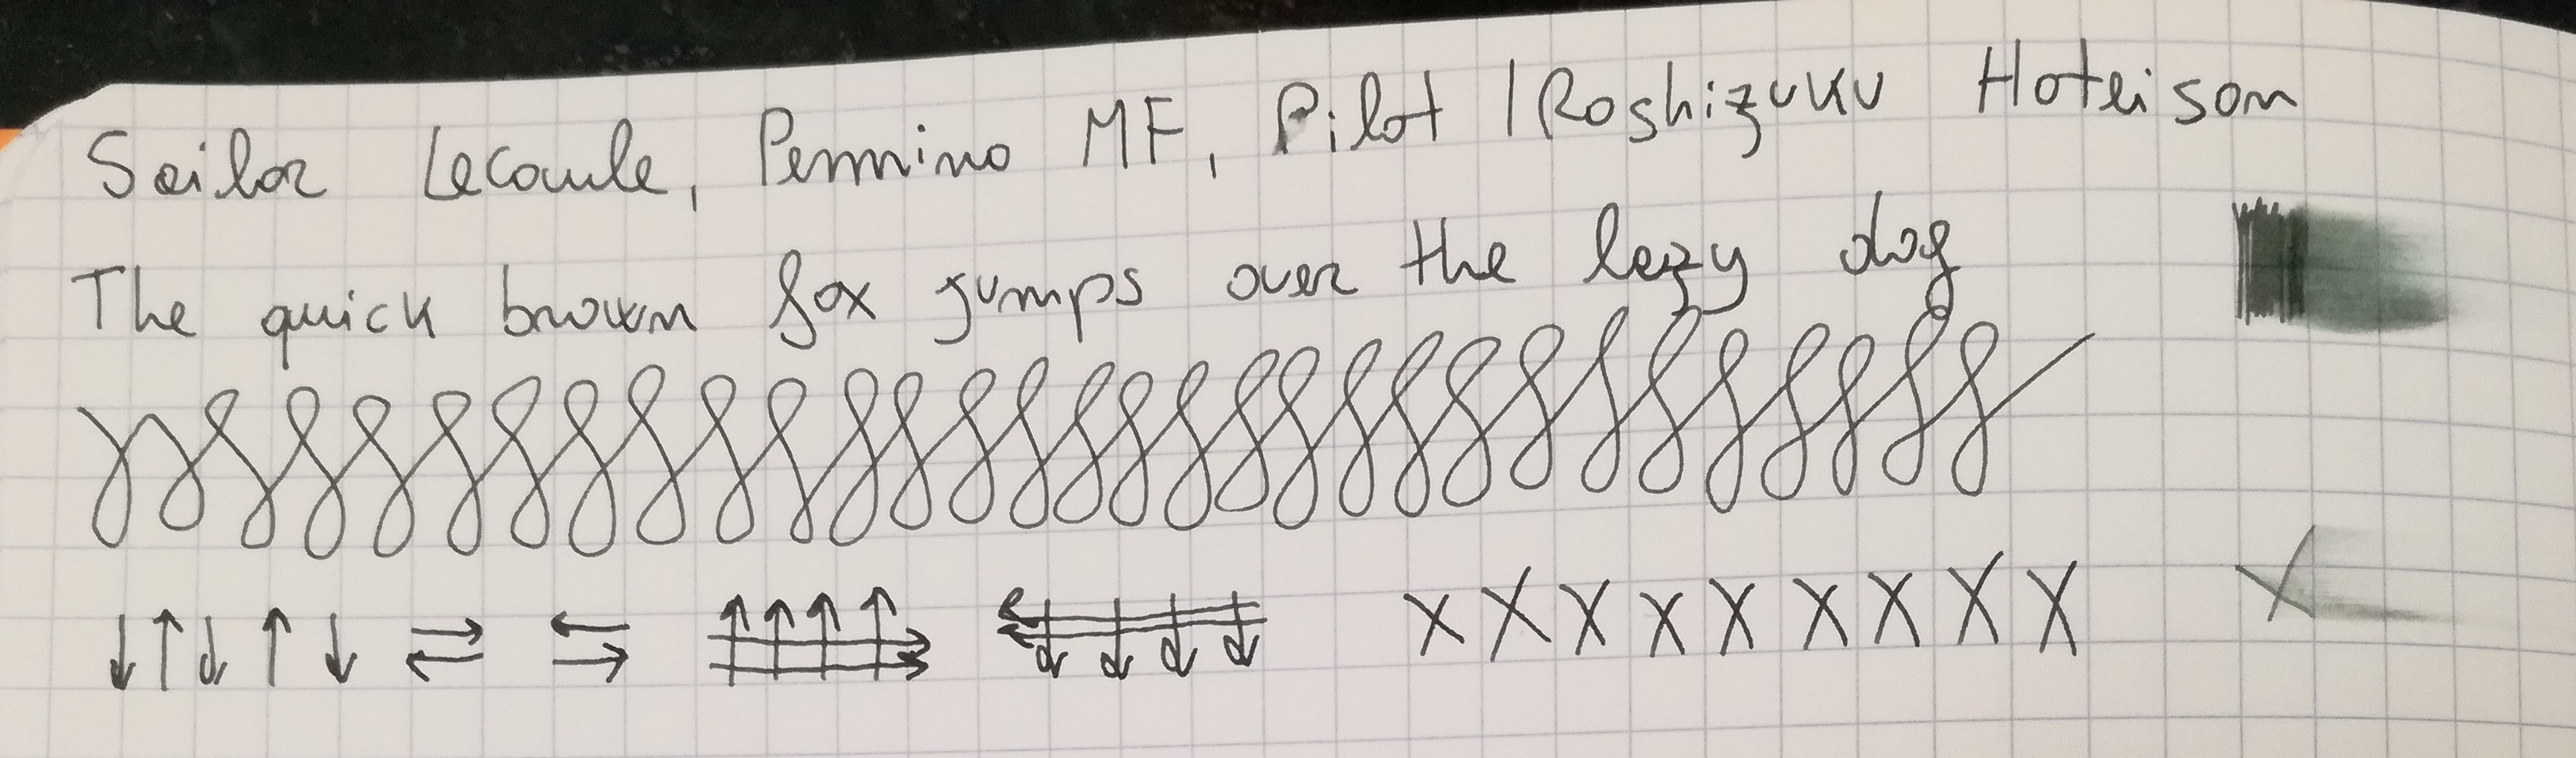 Sailor Lecoule, Pennino MF, Pilot IRoshizuku Hoteison
The quick brown fox jumps over the lazy dog
x x x x x x x x x x